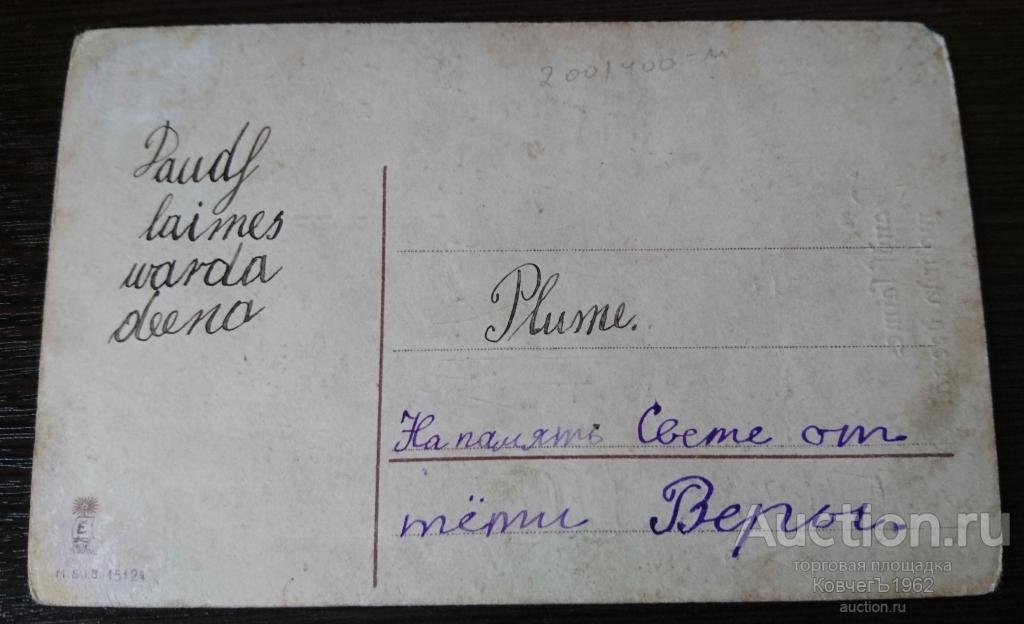 Daudſ
laimes
warda
deena
Plume.
На память Свете от
тёти Веры.
E
M.&U.B. 15124
Auction.ru
торговая площадка
КовчегЪ1962
auction.ru